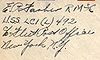 E. R. Farber RM3/c
U.S.S. LCI (L) 492
℅ Fleet Post Office
New York N.Y.